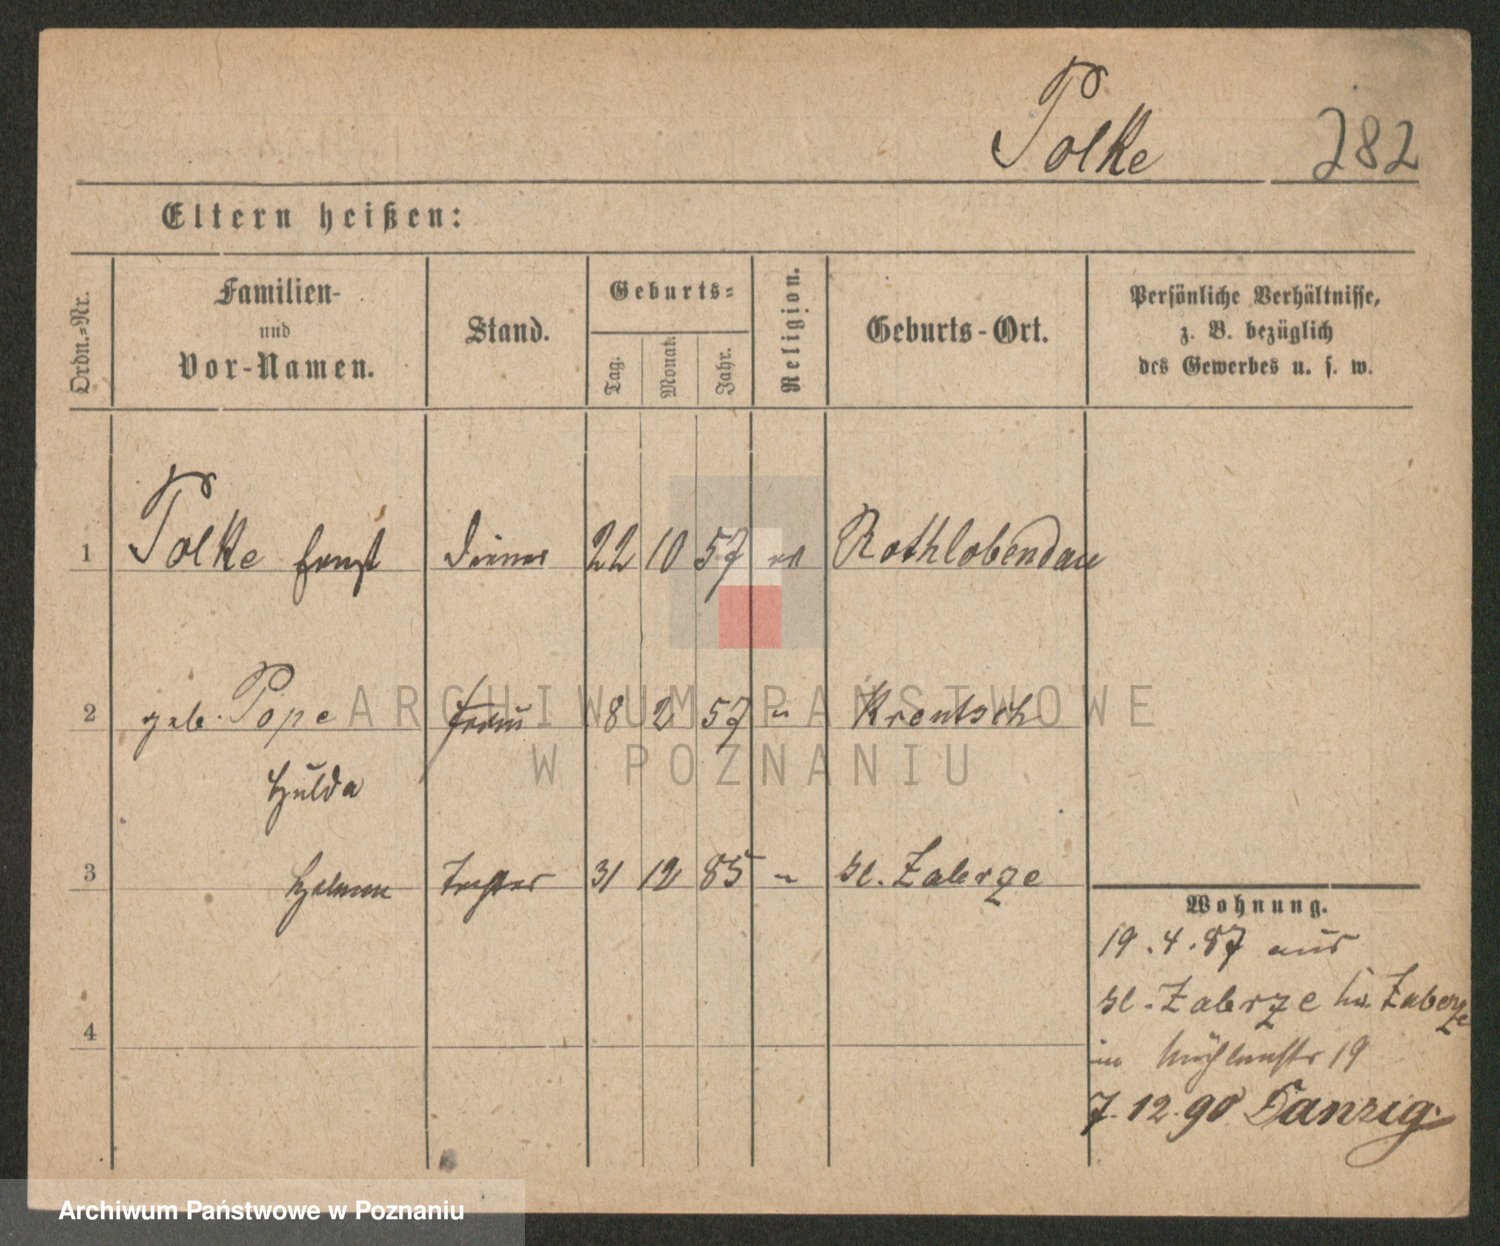 Polke 282
Eltern heißen:
Ordn.-Nr.
Familien-
und
Vor-Namen.
Stand.
Geburts-
Tag.
Monat.
Jahr.
Religion.
Geburts-Ort.
Persönliche Verhältnisse,
z. B. bezüglich
des Gewerbes u. s. w.
1 Polke Ernst Diener 22 10 57 ev Rothlobendau
2 geb. Pope Frau 8 2 57 " Krentsch
Hulda
3 Tochter 31 12 85 " Kl. Zabrze
4
Wohnung.
19.4.87 aus
Kl. Zabrze Zabrze
in 19
7.12.90 Danzig.
ARCHIWUM PAŃSTWOWE
W POZNANIU
Archiwum Państwowe w Poznaniu